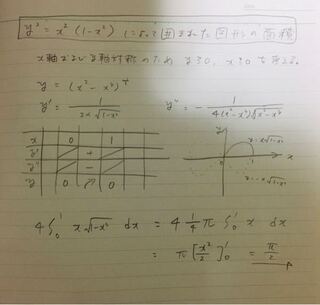 y² = x² (1-x²) によって囲まれた図形の面積
x軸 y軸 対称のため y≧0, x≧0 を考える。
y = (x² - x²)
y' = 1/(2x√(1-x²)) y'' = - 1/(4(x²-x²)√(x²-x²))
x 0 1
y' +
y'' -
y 0 ↗ 0
y
y=x√(1-x²)
1 x
y=-x√(1-x²)
4∫₀¹ x√(1-x²) dx = 4 1/4 π ∫₀¹ x dx
= π [x²/2]₀¹ = π/2